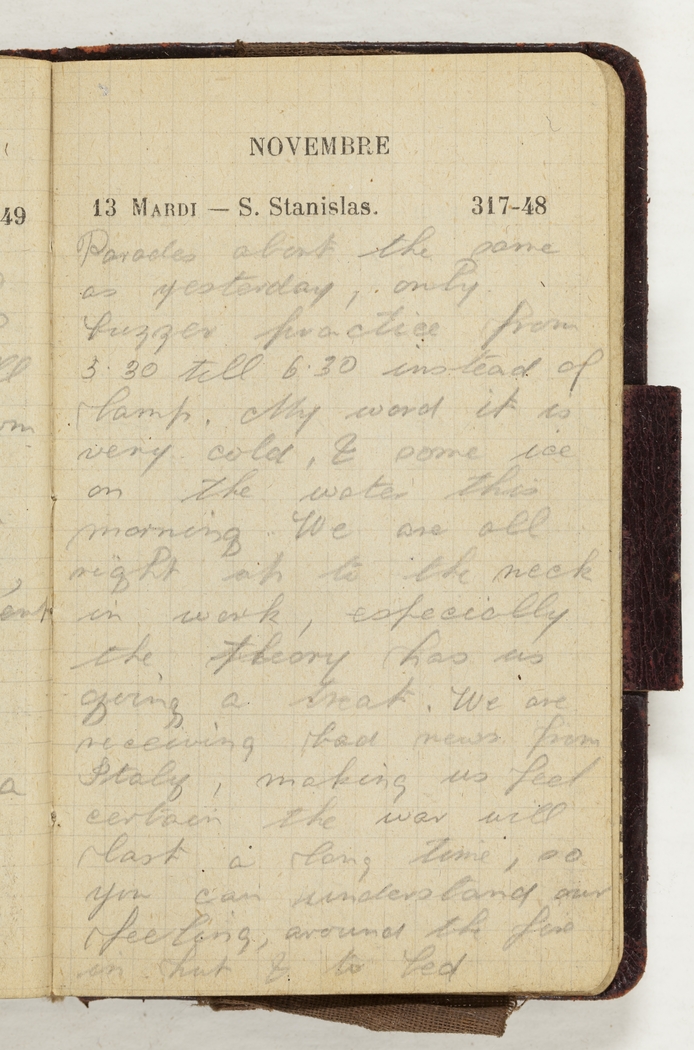 NOVEMBRE
49
13 MARDI — S. Stanislas. 317-48
Parades about the same
as yesterday, only
buzzer practice from
5.30 till 6.30 instead of
lamp. My word it is
very cold, & some ice
on the water this
morning. We are all
right up to the neck
in work, especially
the theory has us
going a treat. We are
receiving bad news from
Italy, making us feel
certain the war will
last a long time, so
you can understand our
feeling, around the fire
in hut & to bed